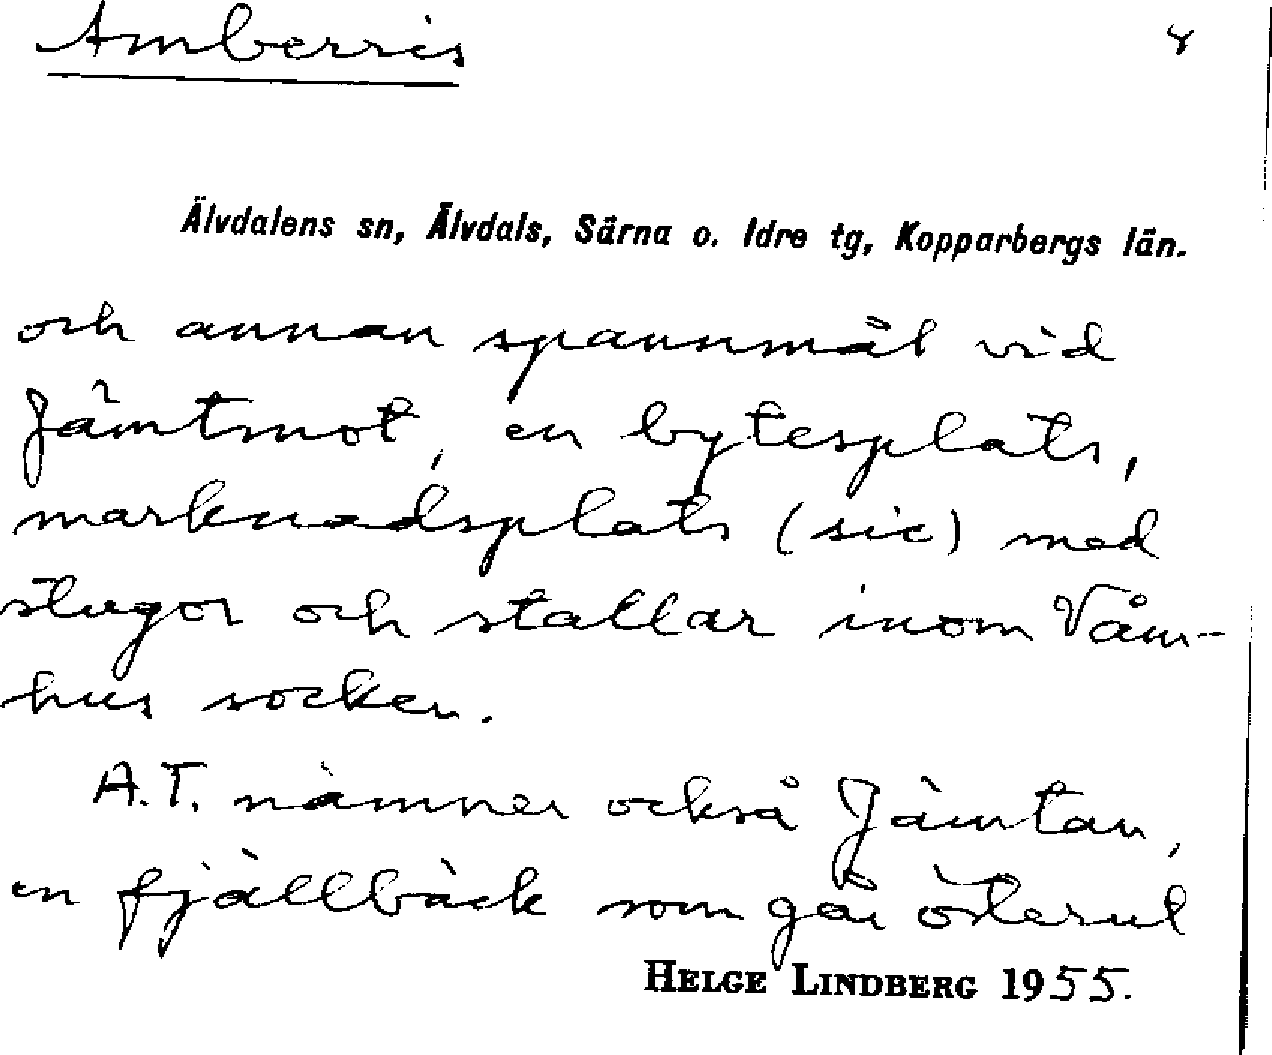 Amberris
8
Älvdalens sn, Älvdals, Särna o. Idre tg, Kopparbergs län.
och annan spannmål vid
Jämtmot, en bytesplats,
marknadsplats (sic) med
stugor och stallar inom Våm-
hus socken.
A.T. nämner också Jämtan,
en fjällbäck som går österut
HELGE LINDBERG 1955.